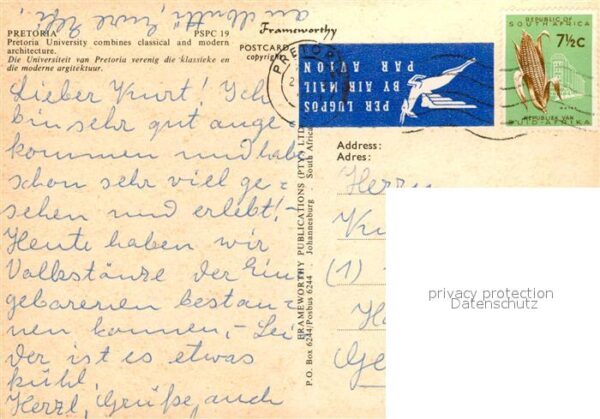 an Mutti, Eure Effi,
PRETORIA PSPC 19
Pretoria University combines classical and modern
architecture.
Die Universiteit van Pretoria verenig die klassieke en
die moderne argitektuur.
Lieber Kurt! Ich
bin sehr gut ange
kommen und habe
schon sehr viel ge-
sehen und erlebt! -
Heute haben wir
Volkstänze der Ein
geborenen bestau-
nen können, - Lei
der ist es etwas
kühl.
Herzl. Grüße, auch
Frameworthy
POSTCARD
copyright
PRETO
PER LUGPOS
BY AIR MAIL
PAR AVION
REPUBLIC OF
SOUTH AFRICA
7½c
REPUBLIEK VAN
SUID-AFRIKA
FRAMEWORTHY PUBLICATIONS (PTY) LTD.
P.O. Box 6244/Posbus 6244 . Johannesburg . South Africa
Address:
Adres:
Herrn
(1)
privacy protection
Datenschutz